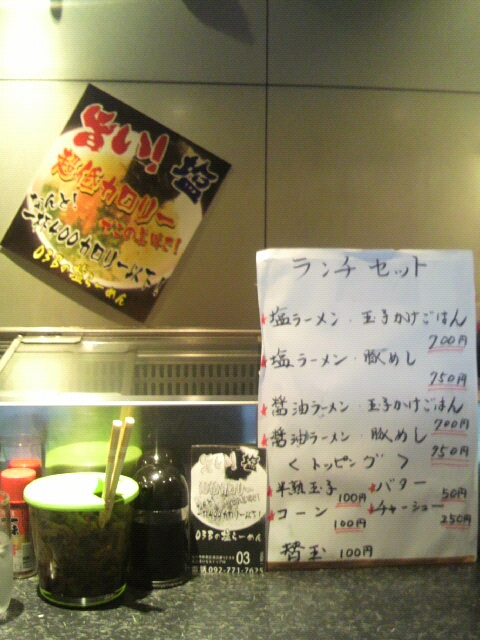 旨い! 塩
超低カロリー
でこのお味で!
なんと!
一杯400カロリー以下
03Bの塩らーめん
ランチセット
★塩ラーメン・玉子かけごはん
700円
★塩ラーメン・豚めし
750円
★醤油ラーメン・玉子かけごはん
700円
★醤油ラーメン・豚めし
750円
<トッピング>
★半熟玉子 100円
★バター 50円
★コーン 100円
★チャーシュー 250円
替玉 100円
旨い! 塩
超低カロリー
03Bの塩らーめん
03
092-771-7625